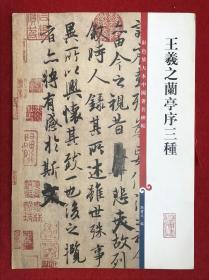 王羲之蘭亭序三種
彩色放大本中國著名碑帖
由今之視昔悲夫故列
敘時人錄其所述雖世殊事
異所以興懷其致一也後之攬
者亦將有感於斯文